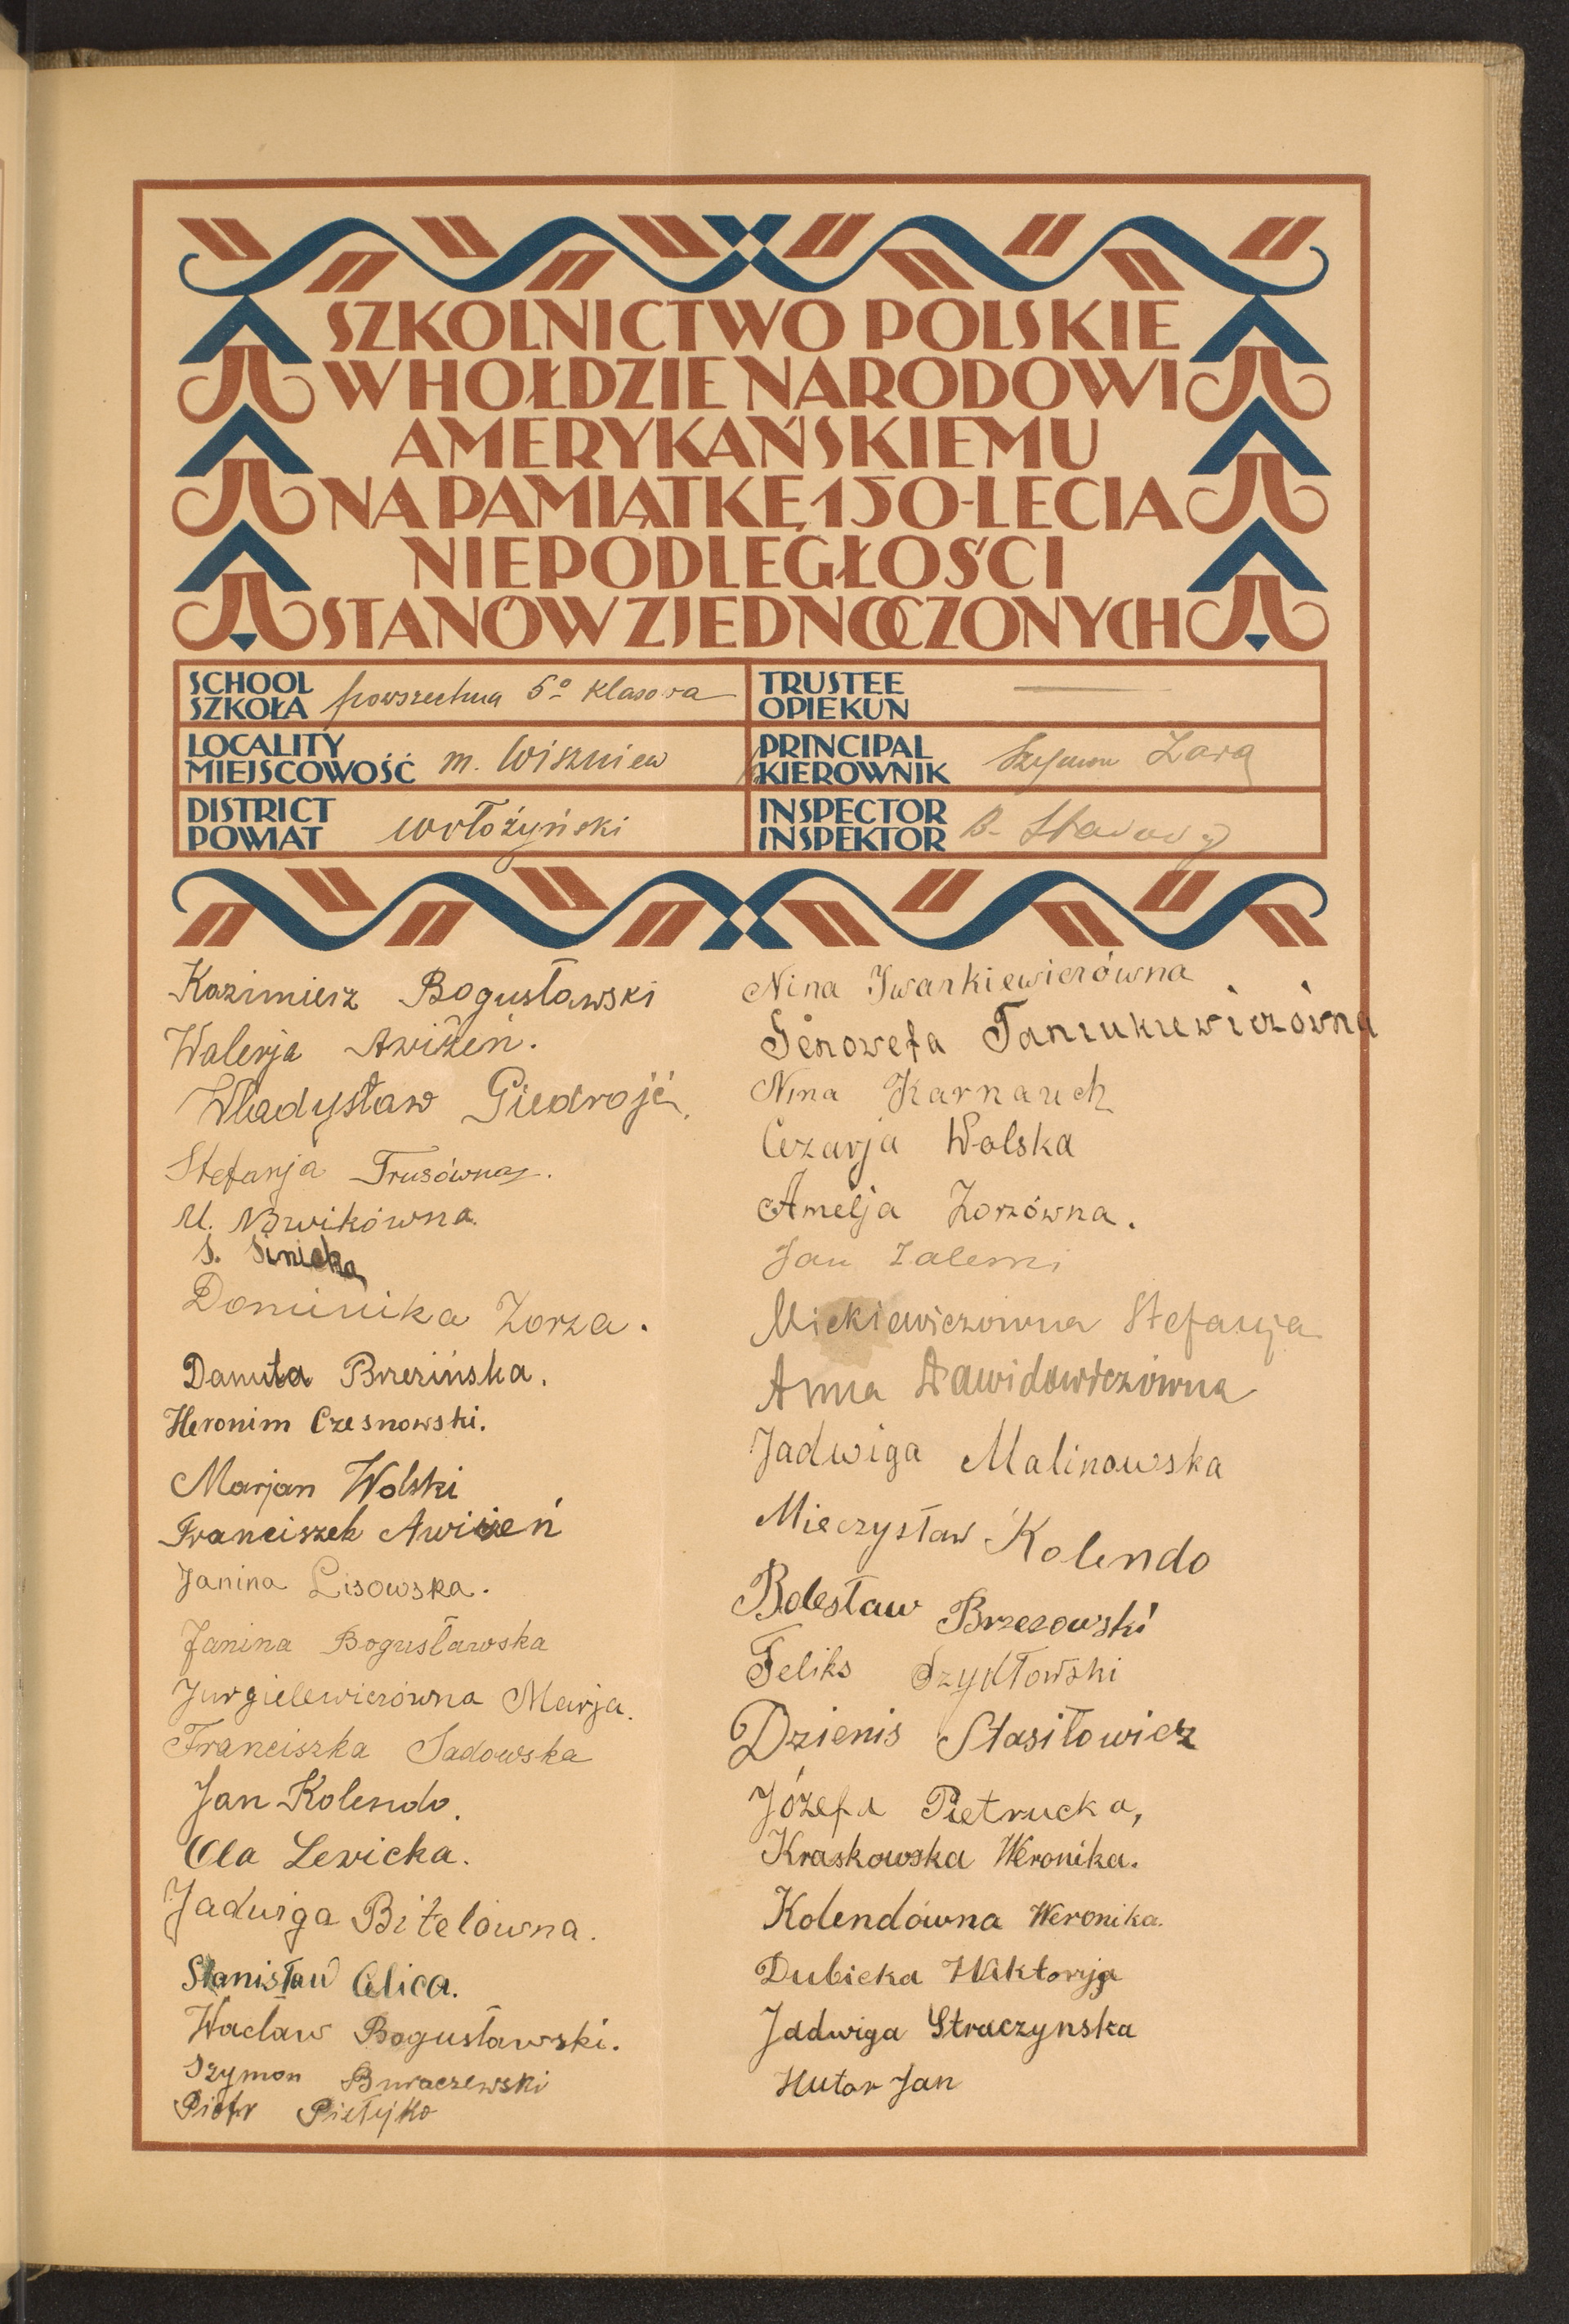 SZKOLNICTWO POLSKIE
W HOŁDZIE NARODOWI
AMERYKAŃSKIEMU
NA PAMIĄTKĘ 150-LECIA
NIEPODLEGŁOŚCI
STANÓW ZJEDNOCZONYCH
SCHOOL
SZKOŁA powszechna 5º klasowa
TRUSTEE
OPIEKUN
LOCALITY
MIEJSCOWOŚĆ m. Wiszniew
PRINCIPAL
KIEROWNIK Szymon Zara
DISTRICT
POWIAT wołożyński
INSPECTOR
INSPEKTOR B.
Kazimierz Bogusławski
Walerja Awiżeń.
Władysław Giedrojć.
Stefanja Trusówna.
M. Nowikówna.
S. Sinicka
Dominika Zorza.
Danuta Brzezińska.
Heronim Czesnowski.
Marjan Wolski
Franciszek Awiżeń
Janina Lisowska.
Janina Bogusławska
Jurgielewiczówna Marja.
Franciszka Sadowska
Jan Kolendo.
Ola Lewicka.
Jadwiga Bitelówna.
Stanisław Clica.
Wacław Bogusławski.
Szymon Buraczewski
Piotr Pietyjko
Nina Iwankiewiczówna
Genowefa Taniukiewiczówna
Nina Karnauch
Cezarja Wolska
Amelja Zorzówna.
Jan Zaleski
Mickiewiczówna Stefanja
Anna Dawidowiczówna
Jadwiga Malinowska
Mieczysław Kolendo
Bolesław Brzezowski
Feliks Szydłowski
Dzienis Stasiłowicz
Józefa Pietrucka,
Kraskowska Weronika.
Kolendówna Weronika.
Dubicka Wiktorja
Jadwiga Straczynska
Hutor Jan